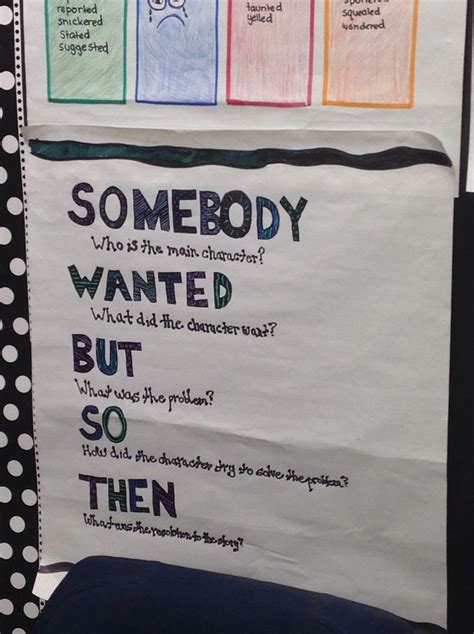 reported
snickered
stated
suggested
taunted
yelled
squealed
wondered
SOMEBODY
Who is the main character?
WANTED
What did the character want?
BUT
What was the problem?
SO
How did the character try to solve the problem?
THEN
What was the resolution to the story?